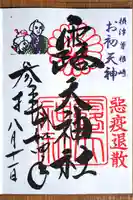 摂津曽根崎
お初天神
露天神社
悪疫退散
参拝
八月十一日